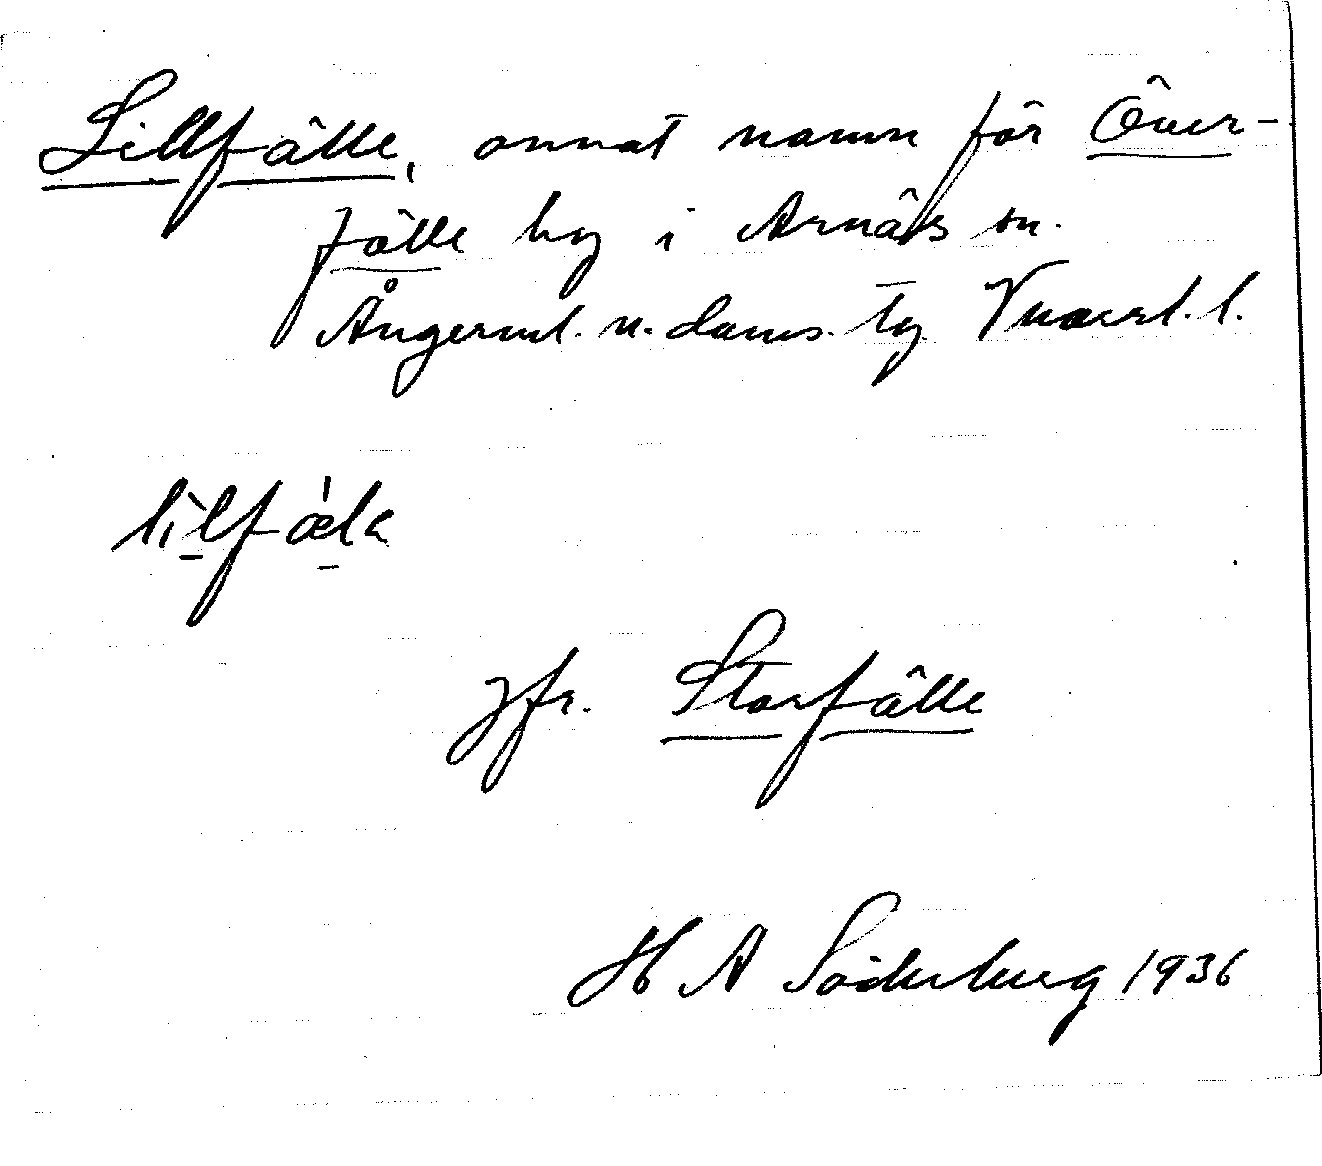 Lillfälle, annat namn för Över-
fälle by i Arnäs sn.
Ångerml. n. doms. tg Vnorrl. l.
lìlfæ̀la
Jfr. Storfälle
H A Söderberg 1936